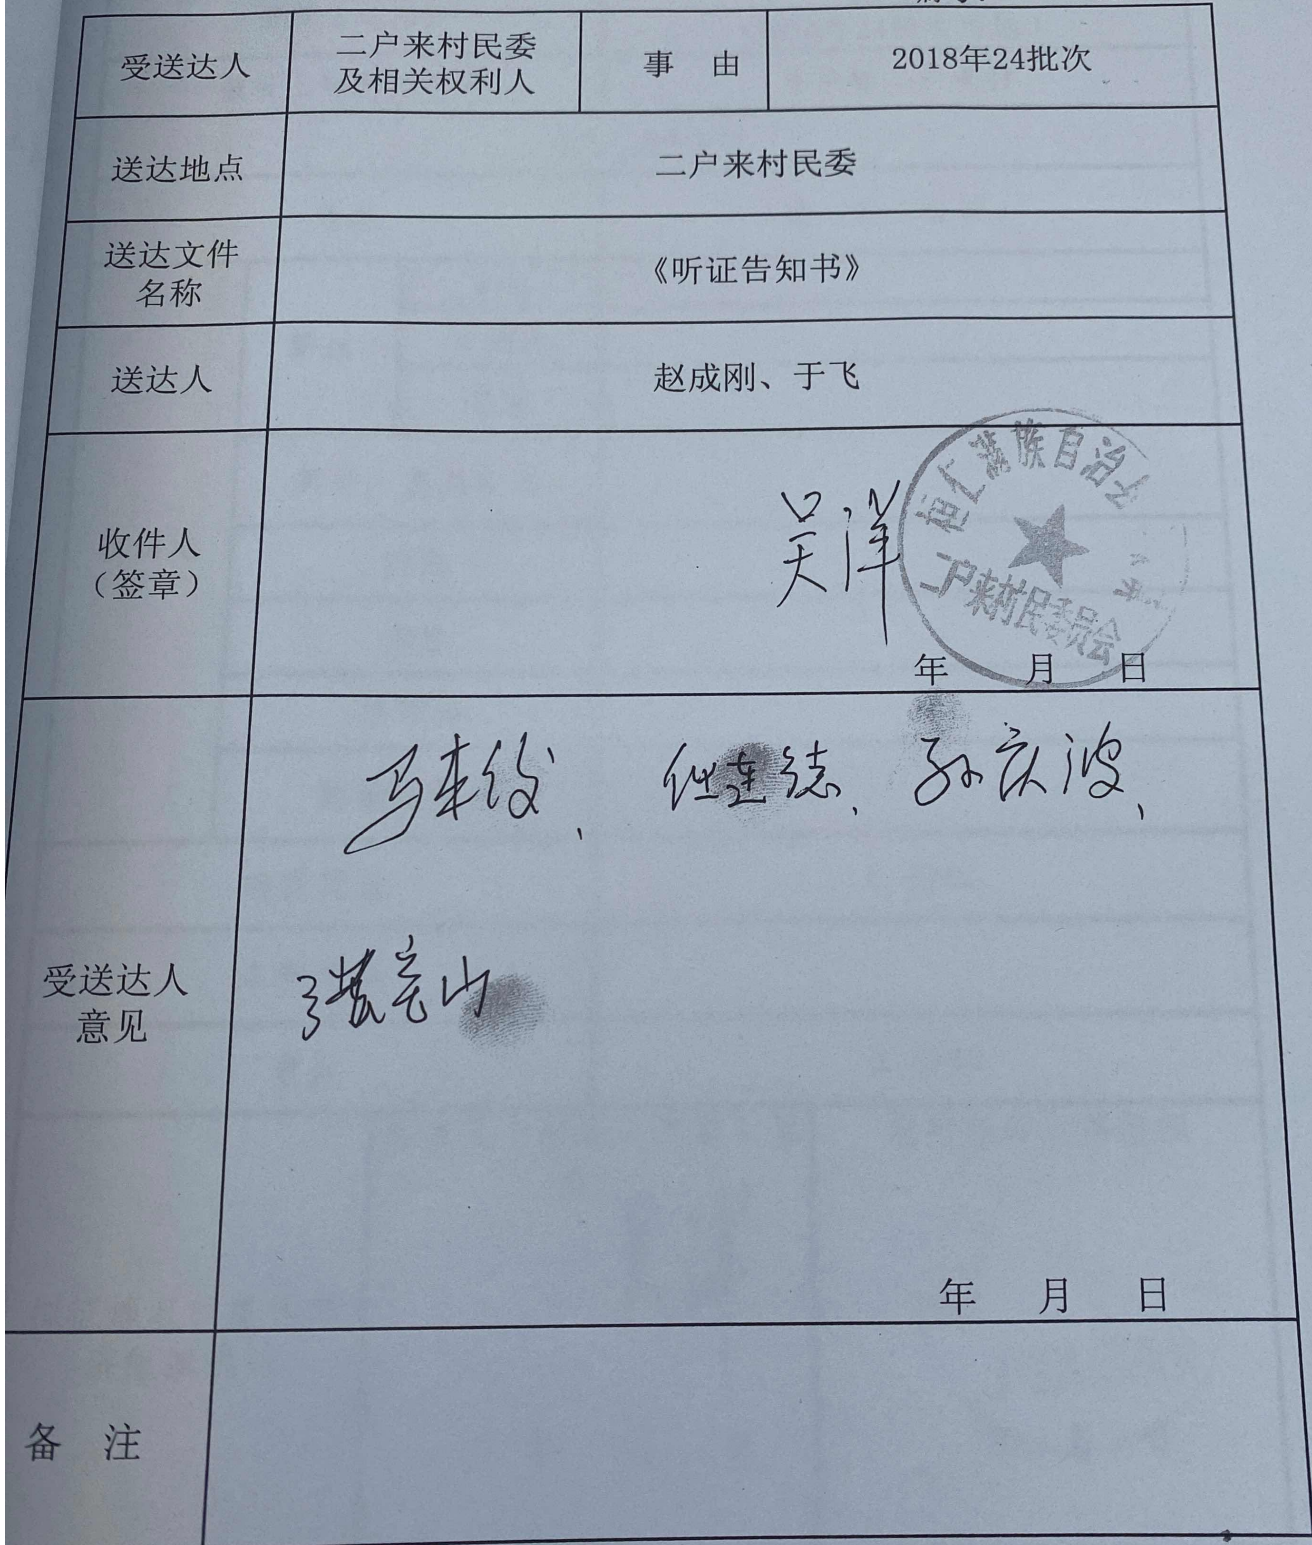 受送达人
二户来村民委
及相关权利人
事 由
2018年24批次
送达地点
二户来村民委
送达文件
名称
《听证告知书》
送达人
赵成刚、于飞
收件人
（签章）
吴洋
桓仁满族自治
二户来村民委员会
年 月 日
受送达人
意见
孙庆波、
年 月 日
备 注